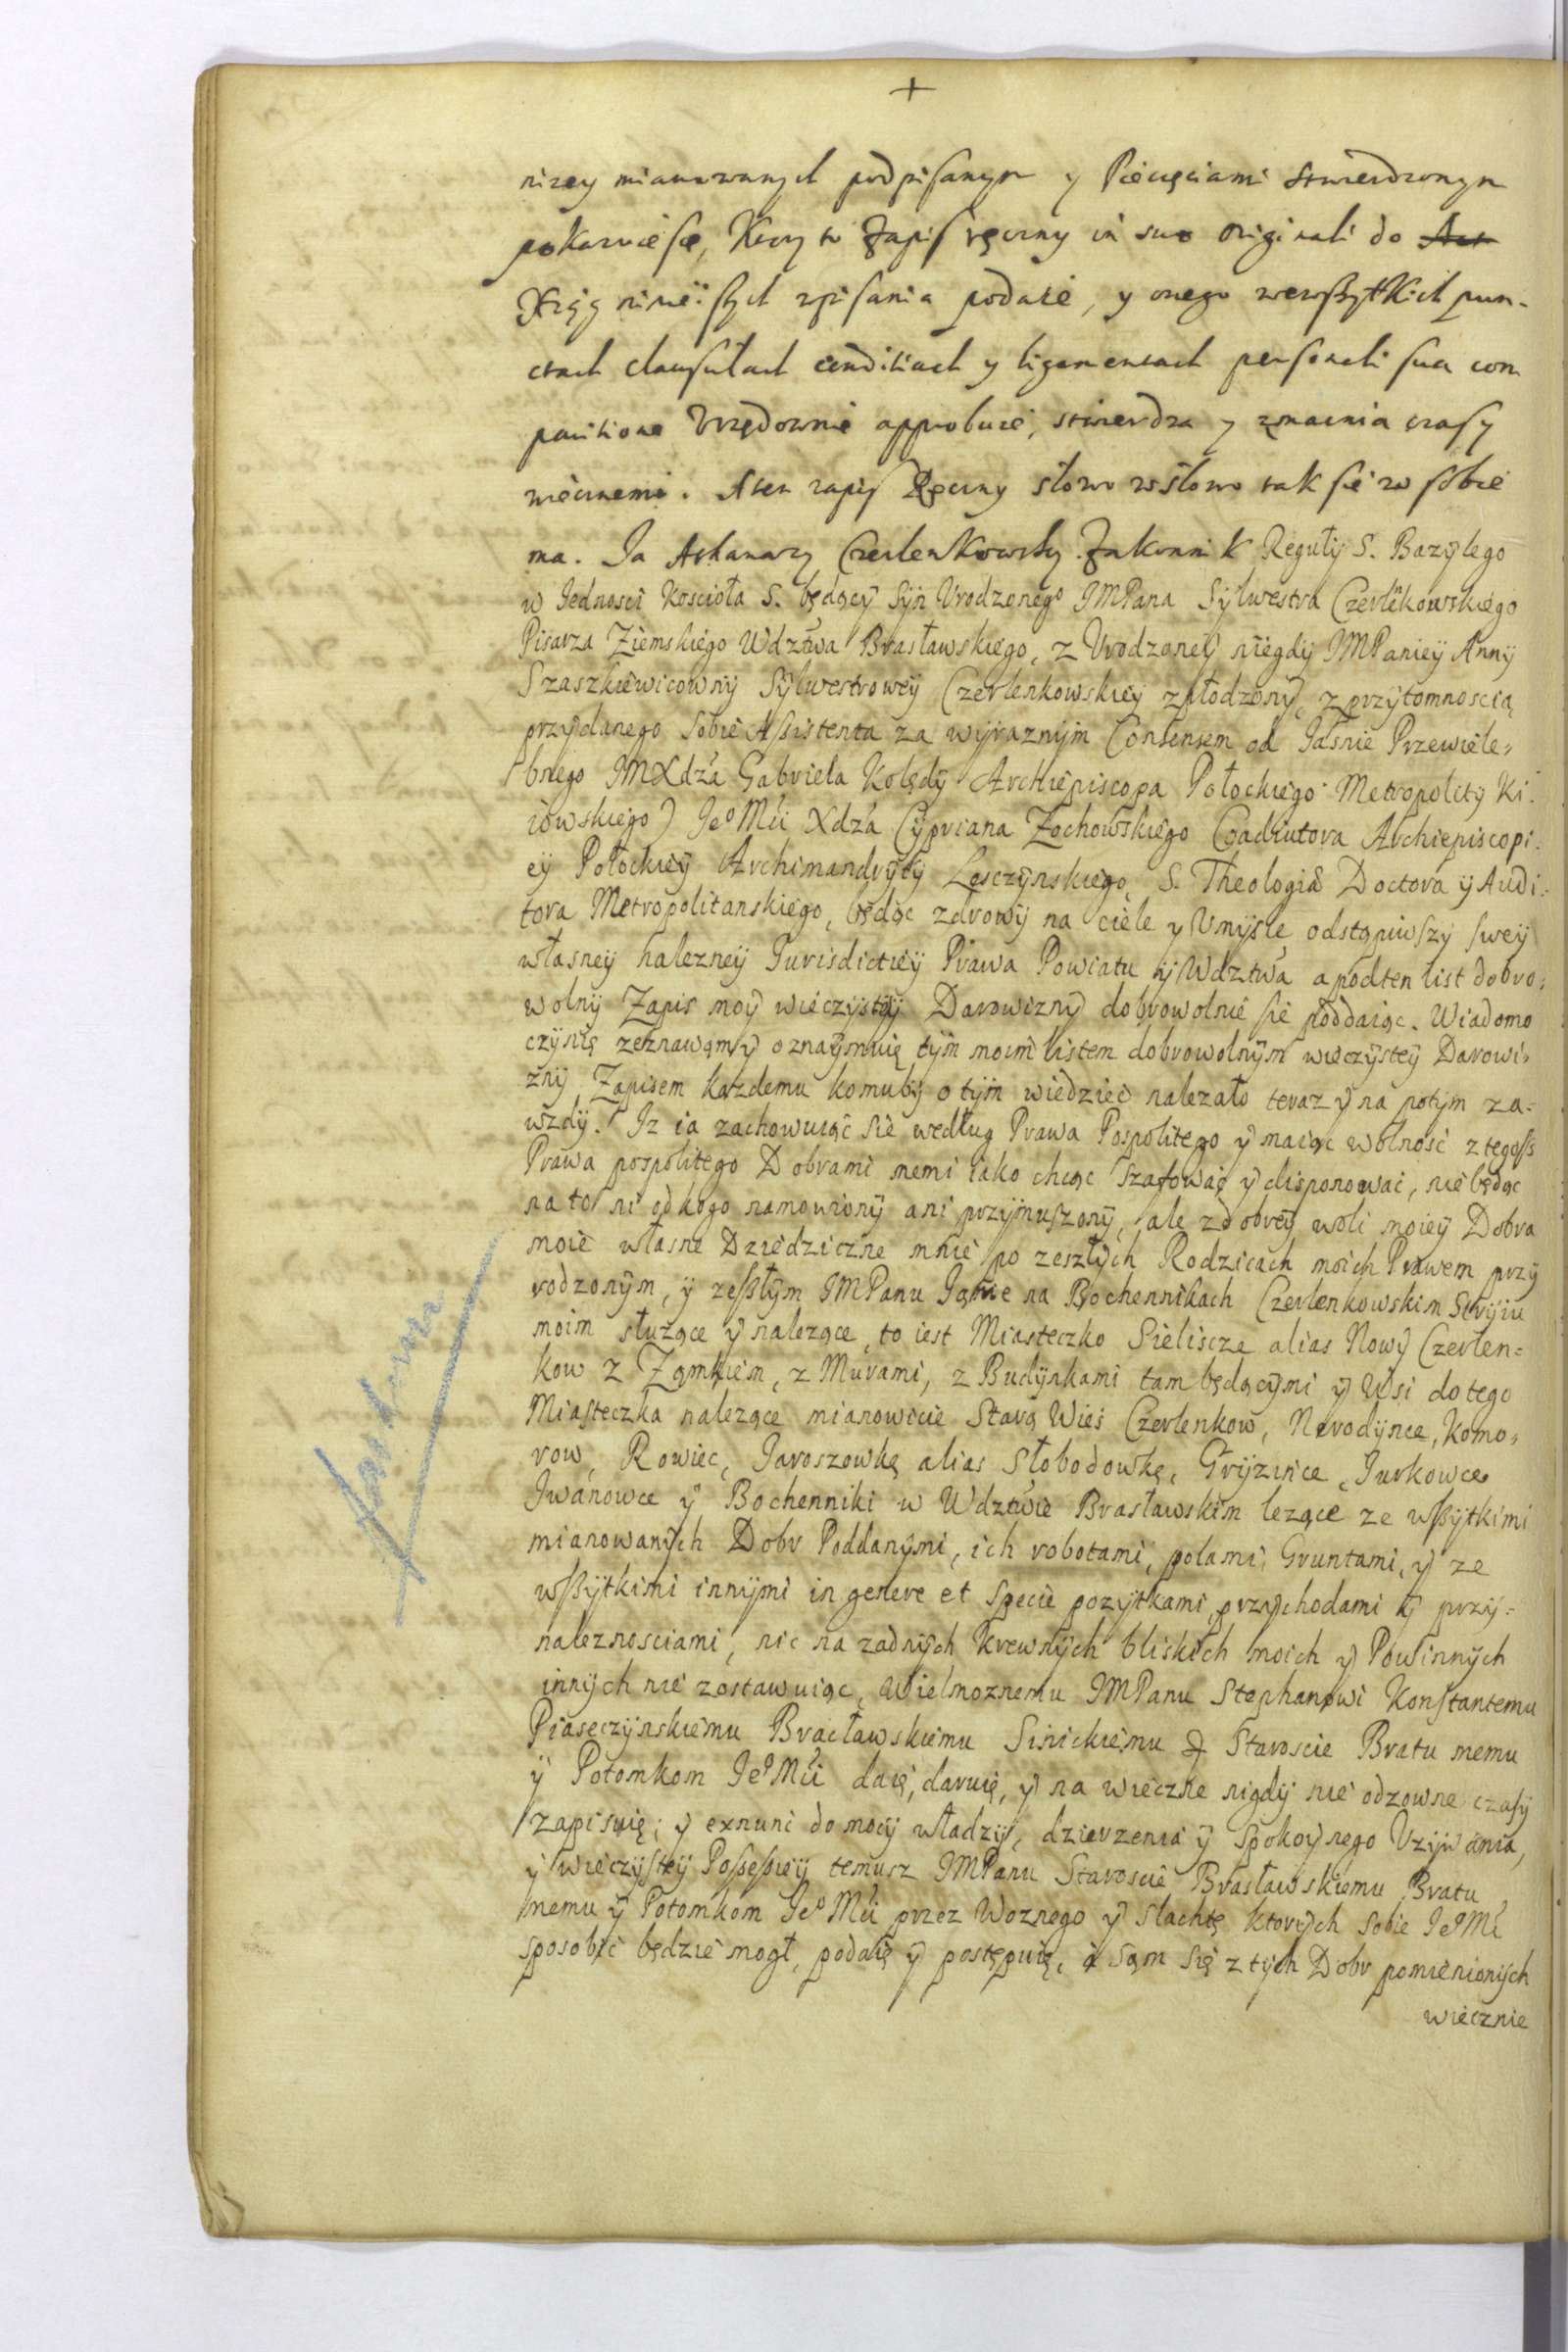 +
nizey mianowanych podpisanym y Pieczęciami stwierdzonym
pokazuie się, Ktory to Zapis ręczny in suo originali do
Xiąg ninieiszych wpisania podaie, y onego wewszytkich pun-
ctach clausulach conditiach y ligamentach personali sua com
paritione Vrzędownie approbuie, stwierdza y zmacnia czasy
wiecznemi. A ten zapis Ręczny słowo wsłowo tak się w sobie
ma. Ja Athanazy Czerlenkowsky Zakonnik Reguły S. Bazylego
w Iednosci Koscioła S. będący Syn Vrodzonego IMPana Sylwestra Czerlēkowskiego
Pisarza Ziemskiego Wdztwa Brasławskiego, z Vrodzoney niegdy IMPaniey Anny
Szaszkiewicowny Sylwestrowey Czerlenkowskiey zpłodzony, z przytomnoscią
przydanego sobie Assistenta za wyraznym Consensem od Iasnie Przewiele-
bnego IMXdza Gabriela Kolędy Archiepiscopa Połockiego Metropolity Ki-
iowskiego) Ieo Mći Xdza Cypriana Zochowskiego Coadiutora Archiepiscopi-
ey Połockiey Archimandryty Lesczynskiego, S. Theologiæ Doctora y Audi-
tora Metropolitanskiego, będąc zdrowy na ciele y Vmysle odstąpiwszy swey
własney należney Iurisdictiey Prawa Powiatu y Wdztwa a podten list dobro-
wolny Zapis moy wieczystey Darowizny dobrowolnie się poddaiąc. Wiadomo
czynię zeznawam y oznaymuię tym moim listem dobrowolnym wieczystey Darowi-
zny Zapisem kazdemu komuby o tym wiedziec nalezało teraz y na potym za-
wzdy. Iz ia zachowuiąc się według Prawa Pospolitego y maiąc wolnosc z tegoss
Prawa pospolitego Dobrami memi iako chcąc szafowac y disponowac, nie będąc
na to ni odkogo namowiony ani przymuszony, ale zdobrey woli moiey Dobra
moie własne Dziedziczne mnie po zeszłych Rodzicach moich Prawem przy
rodzonym, y zesszłym IMPanu Ianie na Bochennikach Czerlenkowskim Stryiu
moim słuzące y nalezące, to iest Miasteczko Sieliscze alias Nowy Czerlen-
kow z Zamkiem, z Murami, z Budynkami tam będącymi y Wsi do tego
Miasteczka nalezące mianowicie Starą Wies Czerlenkow, Narodynce, Komo-
row, Rowiec, Iaroszowkę alias Słobodowkę, Gryzince, Iurkowce
Iwanowce y Bochenniki w Wdztwie Brasławskim lezące ze wszytkimi
mianowanych Dobr Poddanymi, ich robotami, polami, Gruntami, y ze
wszytkimi innymi in genere et specie pozytkami, przychodami y przy-
naleznosciami, nic na zadnych krewnych bliskich moich y Powinnych
innych nie zostawuiąc, Wielmoznemu IMPanu Stephanowi Konstantemu
Piaseczynskiemu Bracławskiemu Sinickiemu & Staroscie Bratu memu
y Potomkom Ieo Mći daię, daruię, y na wieczne nigdy nie odzowne czasy
zapisuię; y exnunc do mocy władzy, dzierzenia y Spokoynego Vzywania,
y wieczystey Possessiey temusz IMPanu Staroscie Brasławskiemu Bratu
memu y Potomkom Ieo Mći przez Woznego y slachtę ktorych sobie Ieo Mć
sposobic będzie mogł, podaię y postępuię, a sam się z tych Dobr pomienionych
wiecznie